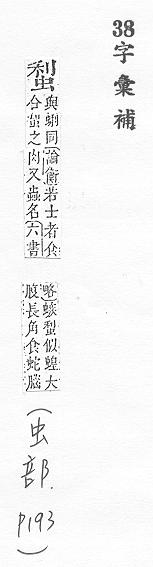 38字彙補
與蜊同論衡若士者食
合之肉又蟲名六書
略似蝗大
腹長角食蛇腦
(虫部.P193)